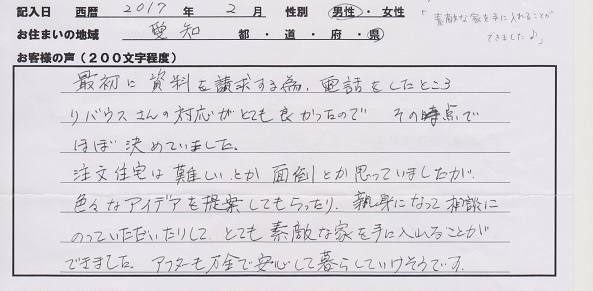 記入日 西暦 2017 年 2 月 性別 男性・女性
「素敵な家を手に入れることが
できました♪」
お住まいの地域 愛知 都・道・府・県
お客様の声(200文字程度)
最初に資料を請求する為、電話をしたところ
リバウスさんの対応がとても良かったので その時点で
ほぼ決めていました。
注文住宅は難しいとか面倒とか思っていましたが、
色々なアイデアを提案してもらったり、親身になって相談に
のっていただいたりして、とても素敵な家を手に入れることが
できました。アフターも万全で安心して暮らしていけそうです。